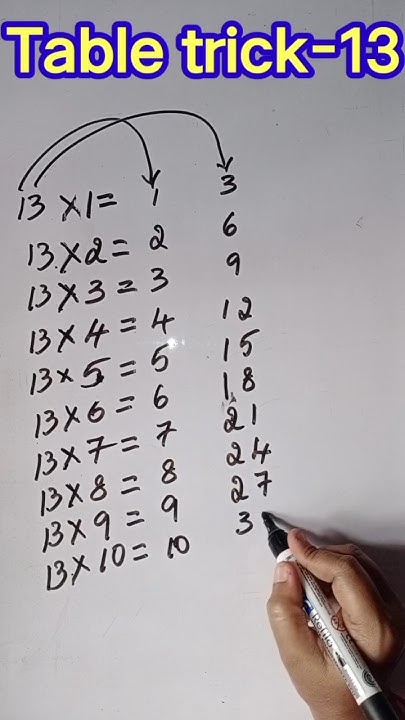 Table trick-13
13 ×1= 1 3
13 ×2= 2 6
13 ×3 = 3 9
13 ×4 = 4 12
13 ×5 = 5 15
13 ×6 = 6 18
13 ×7 = 7 21
13 ×8 = 8 24
13 ×9 = 9 27
13 ×10 = 10 3